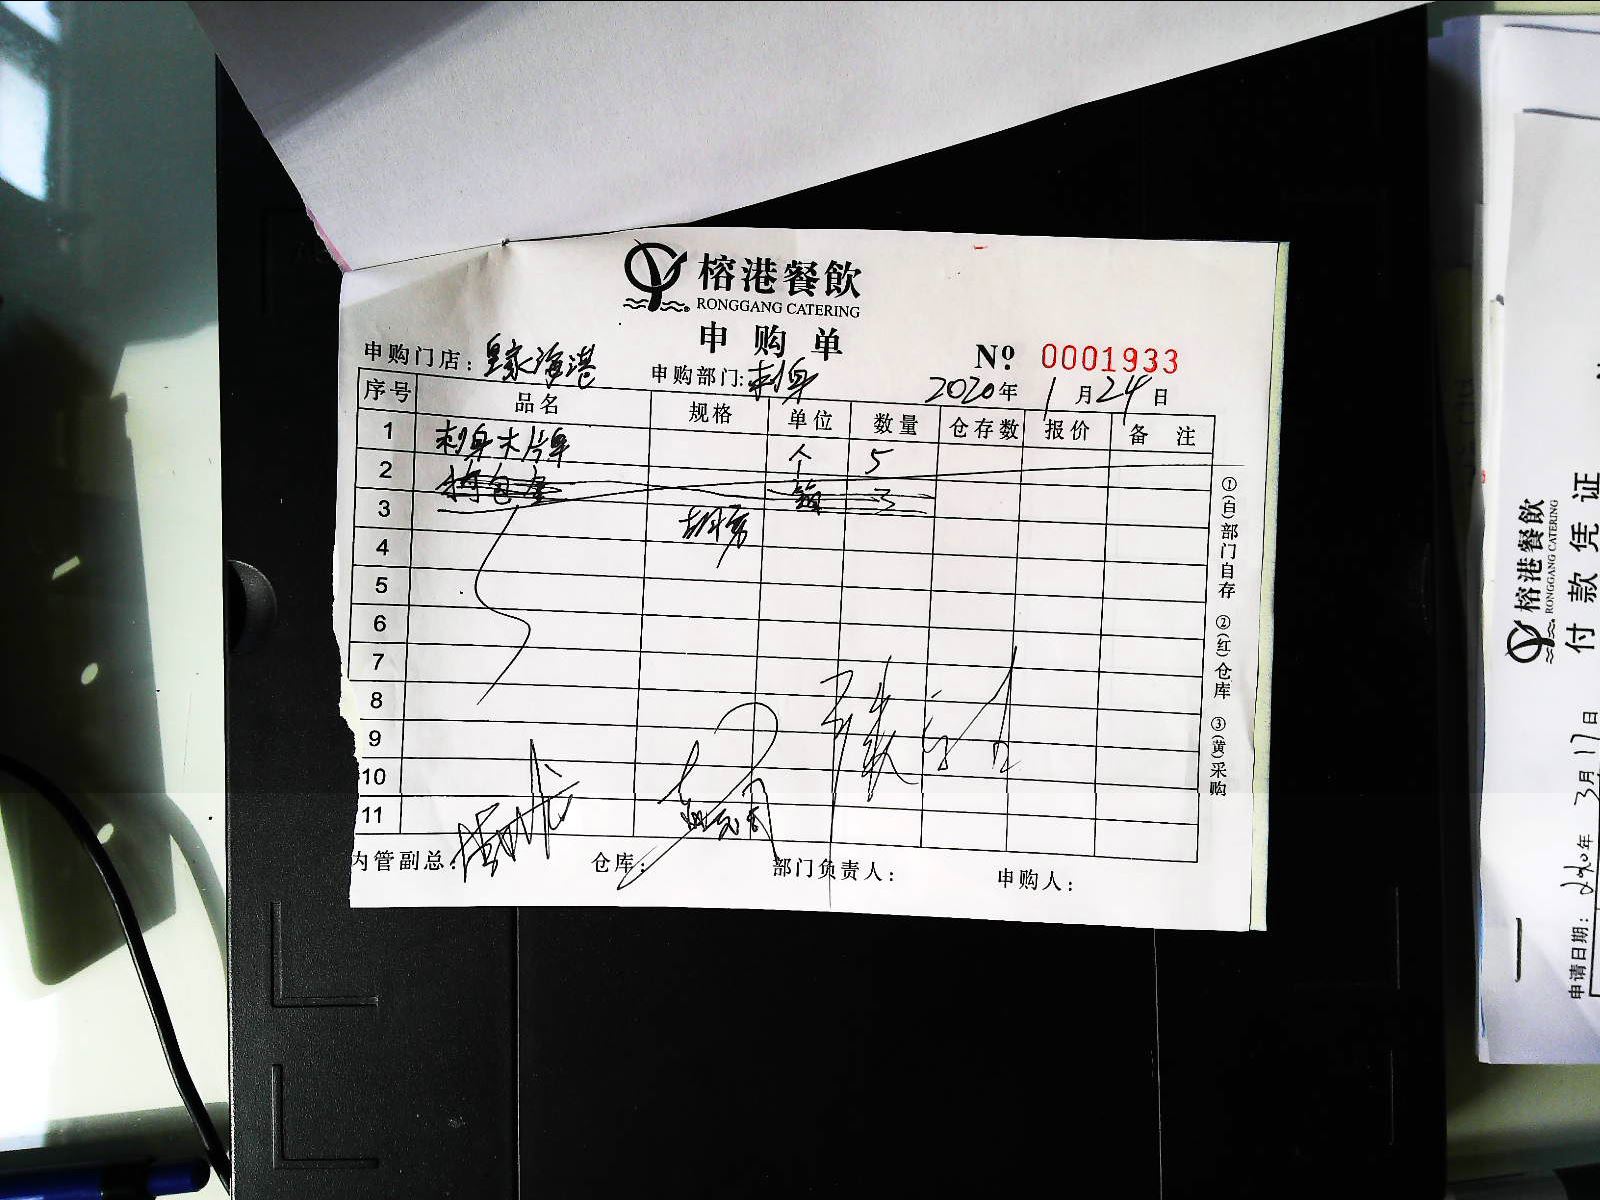 榕港餐飲
RONGGANG CATERING
申购单
Nº 0001933
申购门店：皇家海港 申购部门：刺身 2020年1月24日
序号 品名 规格 单位 数量 仓存数 报价 备注
1 刺身木 个 5
2 箱 3
3
4
5
6
7
8
9
10
11
内管副总： 仓库： 部门负责人： 申购人：
①(白)部门自存 ②(红)仓库 ③(黄)采购
榕港餐飲
RONGGANG CATERING
付款凭证
申请日期：2020年3月17日